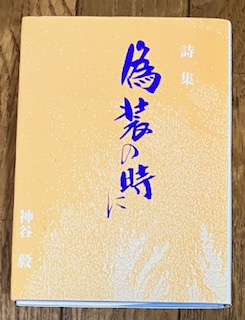 詩集
偽装の時に
神谷 毅